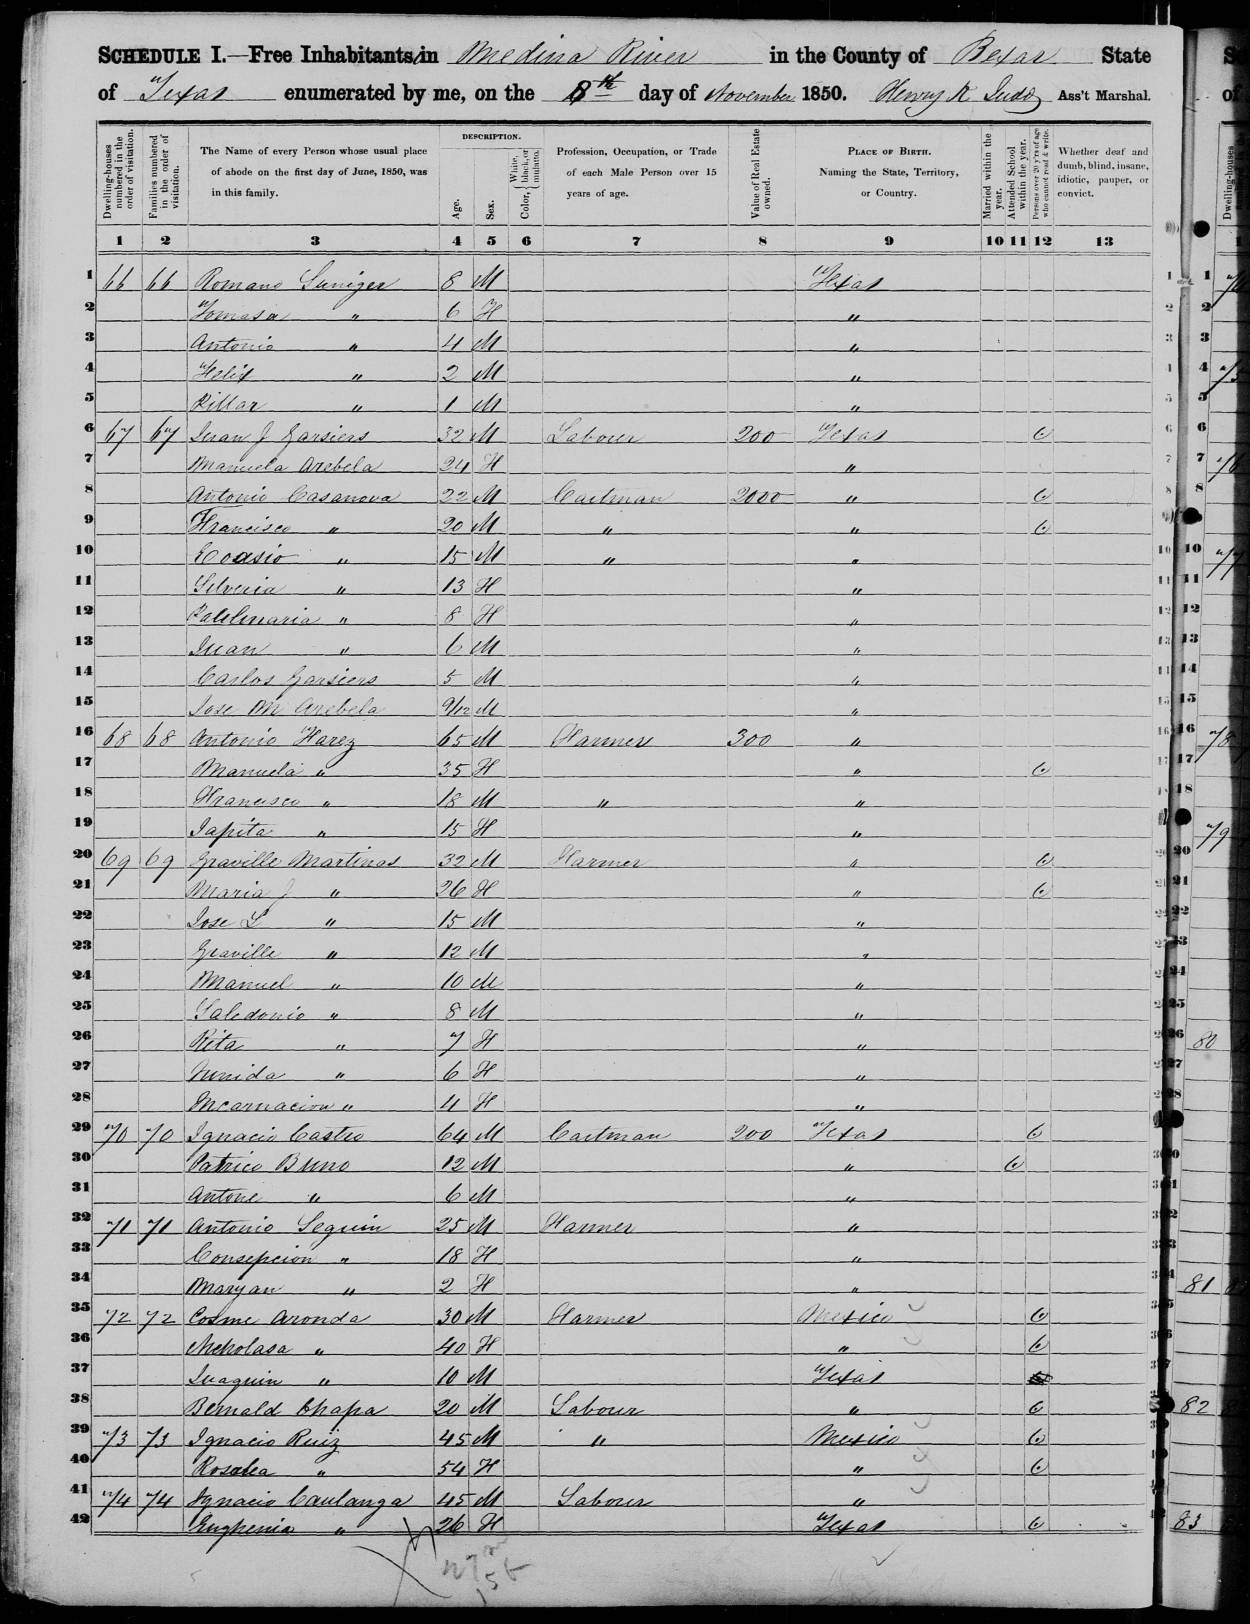 SCHEDULE I.—Free Inhabitants in Medina River in the County of Bexar State
of Texas enumerated by me, on the 8th day of November 1850. Henry K Judd Ass't Marshal.
Dwelling-houses numbered in the order of visitation.
Families numbered in the order of visitation.
The Name of every Person whose usual place of abode on the first day of June, 1850, was in this family.
DESCRIPTION.
Age.
Sex.
Color, { White, black, or mulatto.
Profession, Occupation, or Trade of each Male Person over 15 years of age.
Value of Real Estate owned.
PLACE OF BIRTH. Naming the State, Territory, or Country.
Married within the year.
Attended School within the year.
Persons over 20 y'rs of age who cannot read & write.
Whether deaf and dumb, blind, insane, idiotic, pauper, or convict.
1 2 3 4 5 6 7 8 9 10 11 12 13
1 66 66 Romano Suniger 8 M Texas
2 Tomasa " 6 F "
3 Antonio " 4 M "
4 Felix " 2 M "
5 Pillar " 1 M "
6 67 67 Juan J Garsiers 32 M Labour 200 Texas
7 Manuela Arebela 24 F "
8 Antonio Casanova 22 M Cartman 2000 "
9 Francisco " 20 M " "
10 " 15 M " "
11 Silveria " 13 F "
12 " 8 F "
13 Juan " 6 M "
14 Carlos Garsiers 5 M "
15 Jose M Arebela 9/12 M "
16 68 68 Antonio Harez 65 M Farmer 300 "
17 Manuela " 35 F "
18 Francisco " 18 M " "
19 Japita " 15 F "
20 69 69 Graville Martinas 32 M Farmer "
21 Maria J " 26 F "
22 Jose L " 15 M "
23 Graville " 12 M "
24 Manuel " 10 M "
25 Saledonio " 8 M "
26 Rita " 7 F "
27 " 6 F "
28 Incarnacion " 4 F "
29 70 70 Ignacio Castro 64 M Cartman 200 Texas
30 Patrico Buno 12 M "
31 Antone " 6 M "
32 71 71 Antonio Seguin 25 M Farmer "
33 Consepcion " 18 F "
34 Maryan " 2 F "
35 72 72 Cosme Aronda 30 M Farmer Mexico
36 Nickolasa " 40 F "
37 Juaquin " 10 M Texas
38 Bernald Chapa 20 M Labour "
39 73 73 Ignacio Ruiz 45 M " Mexico
40 Rosalea " 54 F "
41 74 74 Ignacio Caulanga 45 M Labour "
42 Eughenia " 26 F Texas